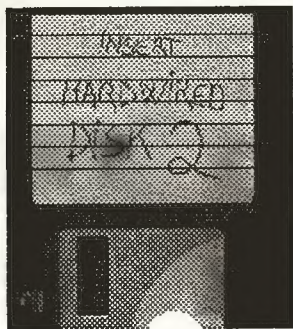 INSERT
HARDWIRED
DISK 2